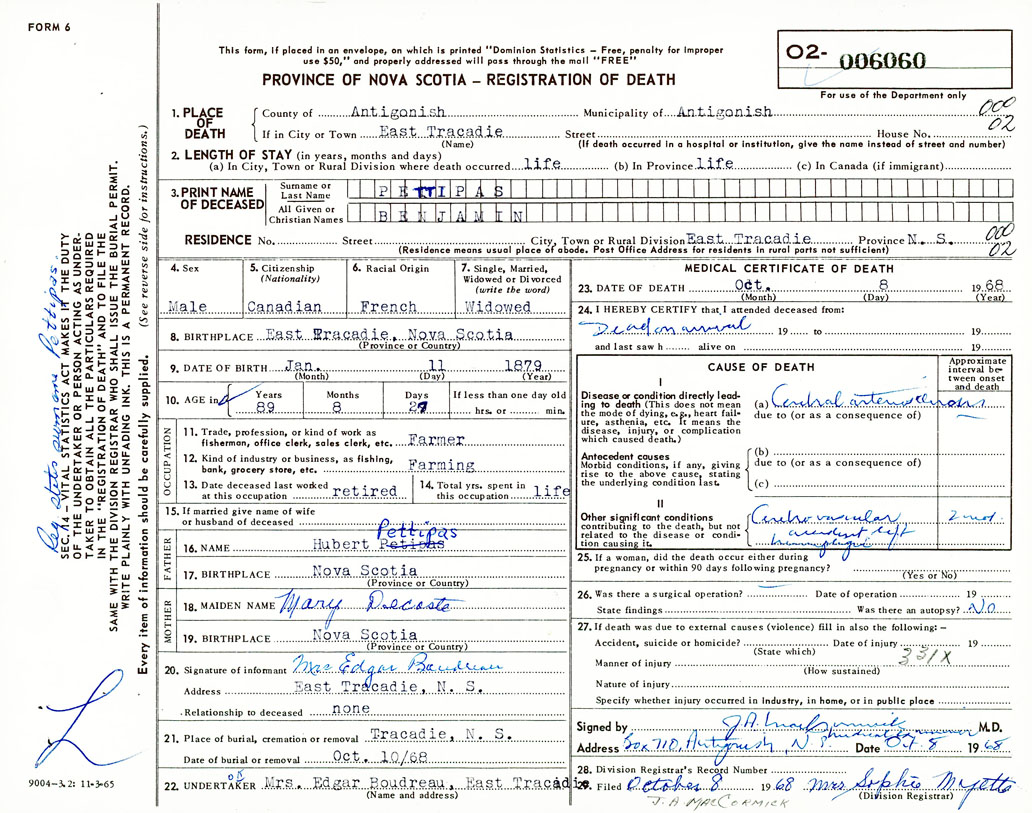 FORM 6
This form, if placed in an envelope, on which is printed "Dominion Statistics – Free, penalty for improper
use $50," and properly addressed will pass through the mail "FREE"
PROVINCE OF NOVA SCOTIA – REGISTRATION OF DEATH
O2- 006060
For use of the Department only
000
02
1. PLACE OF DEATH
County of Antigonish Municipality of Antigonish
If in City or Town East Tracadie Street House No.
(Name) (If death occurred in a hospital or institution, give the name instead of street and number)
2. LENGTH OF STAY (in years, months and days)
(a) In City, Town or Rural Division where death occurred life (b) In Province life (c) In Canada (if immigrant)
3. PRINT NAME OF DECEASED
Surname or Last Name PETTIPAS
All Given or Christian Names BENJAMIN
RESIDENCE No. Street City, Town or Rural Division East Tracadie Province N. S.
(Residence means usual place of abode. Post Office Address for residents in rural parts not sufficient)
000
02
4. Sex
Male
5. Citizenship
(Nationality)
Canadian
6. Racial Origin
French
7. Single, Married,
Widowed or Divorced
(write the word)
Widowed
8. BIRTHPLACE East Tracadie, Nova Scotia
(Province or Country)
9. DATE OF BIRTH Jan. 11 1879
(Month) (Day) (Year)
10. AGE in Years Months Days If less than one day old
89 8 27 hrs. or min.
OCCUPATION
11. Trade, profession, or kind of work as
fisherman, office clerk, sales clerk, etc. Farmer
12. Kind of industry or business, as fishing,
bank, grocery store, etc. Farming
13. Date deceased last worked
at this occupation retired
14. Total yrs. spent in
this occupation life
15. If married give name of wife
or husband of deceased
FATHER
Pettipas
16. NAME Hubert Petipas
17. BIRTHPLACE Nova Scotia
(Province or Country)
MOTHER
18. MAIDEN NAME Mary Decoste
19. BIRTHPLACE Nova Scotia
(Province or Country)
20. Signature of informant Mrs Edgar Boudreau
Address East Tracadie, N. S.
Relationship to deceased none
21. Place of burial, cremation or removal Tracadie, N. S.
Date of burial or removal Oct. 10/68
22. UNDERTAKER or Mrs. Edgar Boudreau, East Tracadie
(Name and address)
MEDICAL CERTIFICATE OF DEATH
23. DATE OF DEATH Oct. 8 1968
(Month) (Day) (Year)
24. I HEREBY CERTIFY that I attended deceased from:
Dead on arrival 19 to 19
and last saw h alive on 19
CAUSE OF DEATH
Approximate
interval be-
tween onset
and death
I
Disease or condition directly lead-
ing to death (This does not mean
the mode of dying, e.g., heart fail-
ure, asthenia, etc. It means the
disease, injury, or complication
which caused death.)
(a) Cerebral arteriosclerosis
due to (or as a consequence of)
Antecedent causes
Morbid conditions, if any, giving
rise to the above cause, stating
the underlying condition last.
(b)
due to (or as a consequence of)
(c)
II
Other significant conditions
contributing to the death, but not
related to the disease or condi-
tion causing it.
Cerebrovascular 2 mos.
accident left
hemiplegia
25. If a woman, did the death occur either during
pregnancy or within 90 days following pregnancy?
(Yes or No)
26. Was there a surgical operation? Date of operation 19
State findings Was there an autopsy? NO
27. If death was due to external causes (violence) fill in also the following: –
Accident, suicide or homicide? Date of injury 19
(State which)
331X
Manner of injury
(How sustained)
Nature of injury
Specify whether injury occurred in industry, in home, or in public place
Signed by J.A. MacCormick M.D.
medical examiner
Address Box 710, Antigonish, N S Date Oct 8 1968
28. Division Registrar's Record Number
29. Filed October 8 1968 Mrs Sophie Myette
(Division Registrar)
J. A MACCORMICK
Reg. states surname Pettipas.
SEC. 14 – VITAL STATISTICS ACT MAKES IT THE DUTY
OF THE UNDERTAKER OR PERSON ACTING AS UNDER-
TAKER TO OBTAIN ALL THE PARTICULARS REQUIRED
IN THE "REGISTRATION OF DEATH" AND TO FILE THE
SAME WITH THE DIVISION REGISTRAR WHO SHALL ISSUE THE BURIAL PERMIT.
WRITE PLAINLY WITH UNFADING INK. THIS IS A PERMANENT RECORD.
Every item of information should be carefully supplied. (See reverse side for instructions.)
9004-3.2: 11-3-65